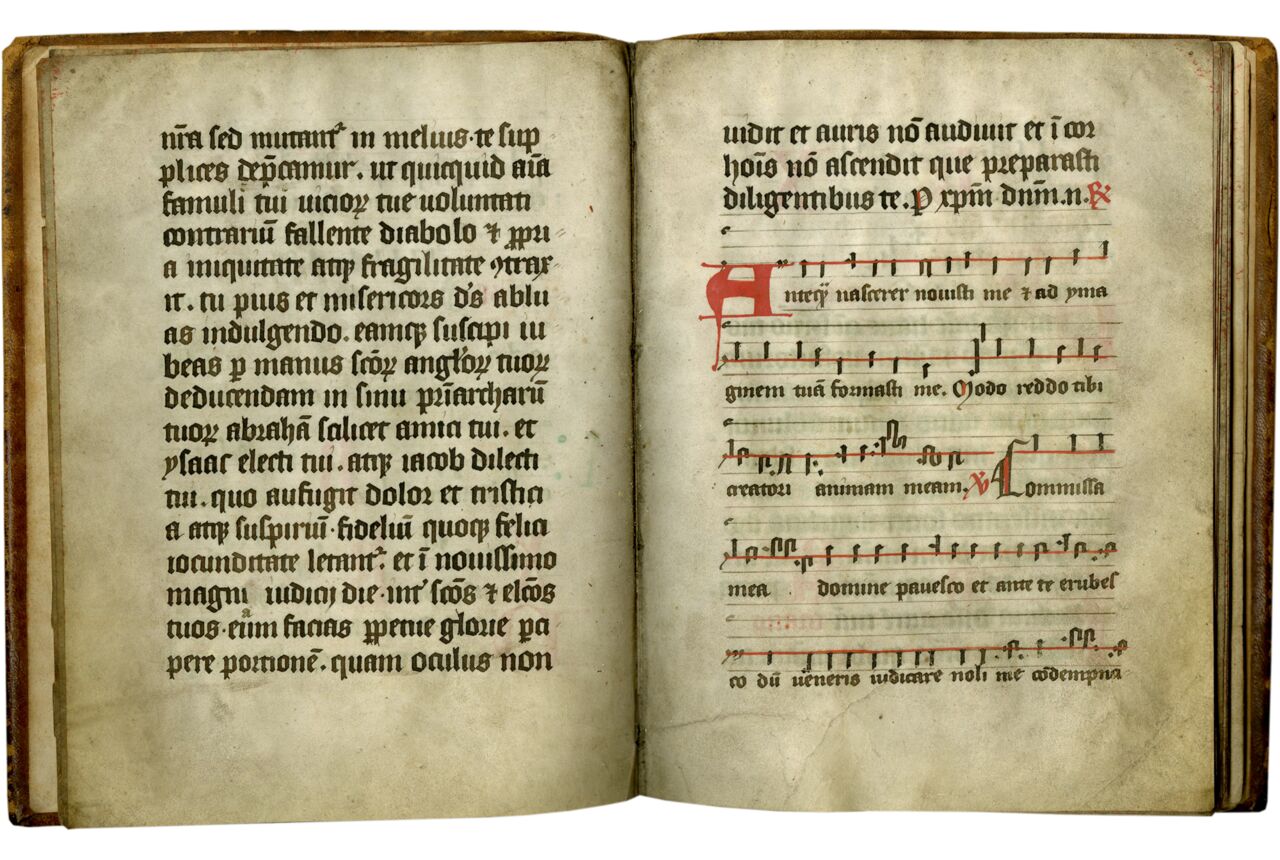 nr̄a sed mutantᷣ in melius·te sup
plices dep̄camur. ut quicquid aīa
famuli tui uicioꝝ tue uoluntati
contrariū fallente diabolo ⁊ ꝓpri
a iniquitate atqꝫ fragilitate ꝯtrax
it. tu pius et misericors d's ablu
as indulgendo. eamqꝫ suscipi iu
beas ꝑ manus sc̄oꝝ angl'oꝝ tuoꝝ
deducendam in sinu pr̄iarcharū
tuoꝝ abrahā scilicet amici tui. et
ysaac electi tui. atqꝫ iacob dilecti
tui. quo aufugit dolor et tristici
a atqꝫ suspiriū·fideliū quoqꝫ felici
iocunditate letantᷣ. et ī nouissimo
magni iudicij die·int' sc̄os ⁊ elc̄os
tuos·eūm facias ꝑpetue glorie ꝑci
pere portionē. quam oculus non
uidit et auris nō audiuit et ī cor
hoīs nō ascendit que preparasti
diligentibus te. P xpm̄ dnm̄.n. ℟
Anteqͣ̄ nascerer nouisti me ⁊ ad yma
ginem tuā formasti me. Modo reddo tibi
creatori animam meam. ℣ Commissa
mea domine pauesco et ante te erubes
co dū ueneris iudicare noli me cōdempna